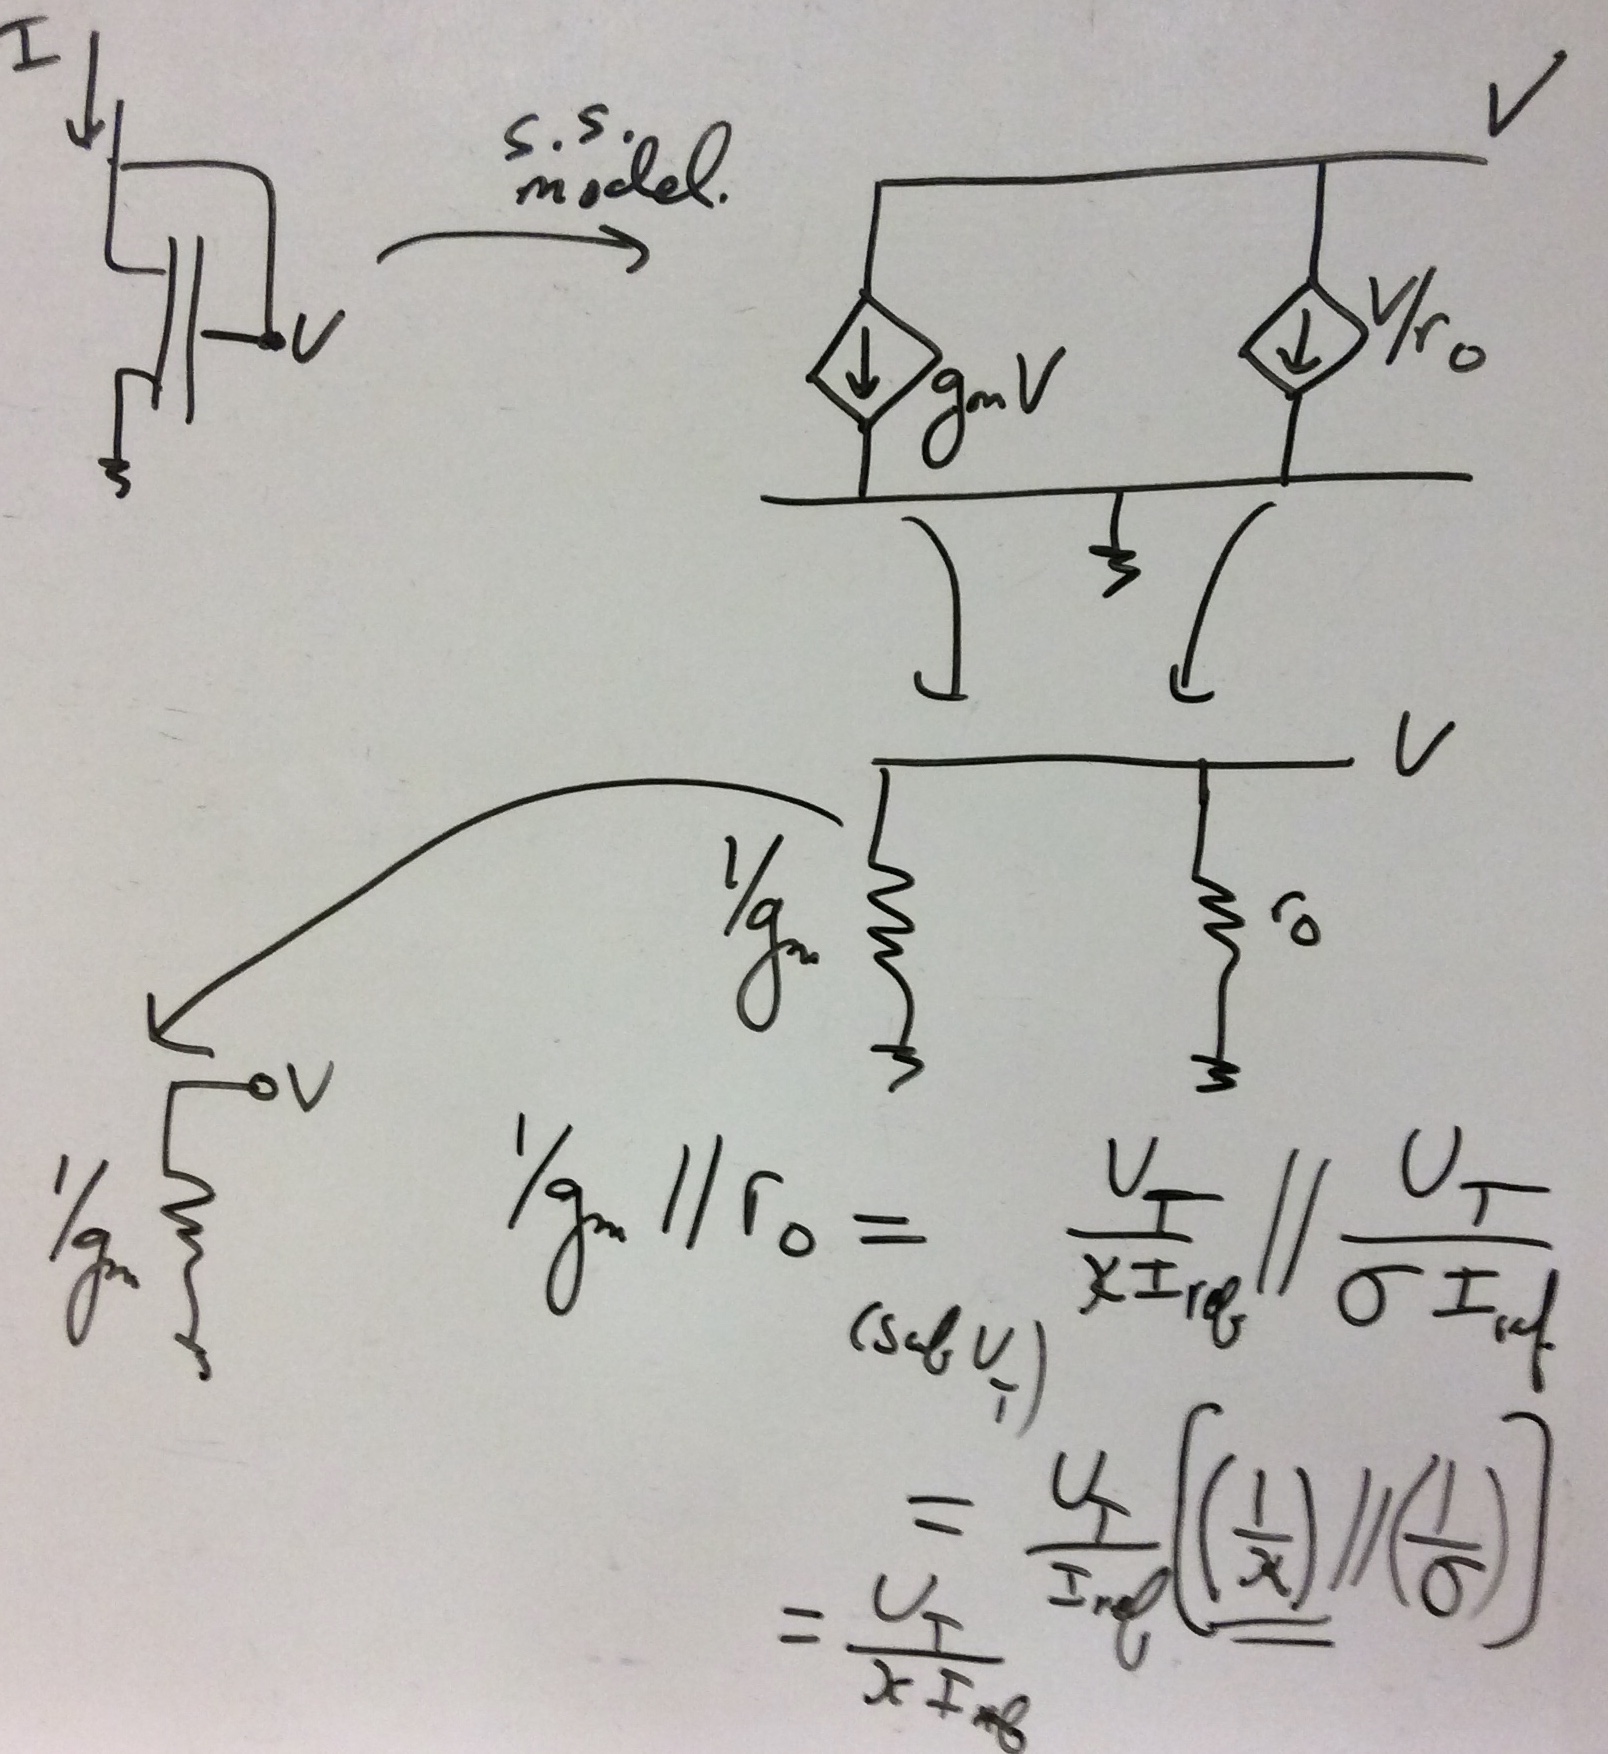 I
s.s.
model.
V
V
gmV
V/ro
V
1/gm
ro
V
1/gm
1/gm // ro = U_T/(κ I_ref) // U_T/(σ I_ref)
(sub V_T)
= U_T/I_ref [(1/κ) // (1/σ)]
= U_T/(κ I_ref)